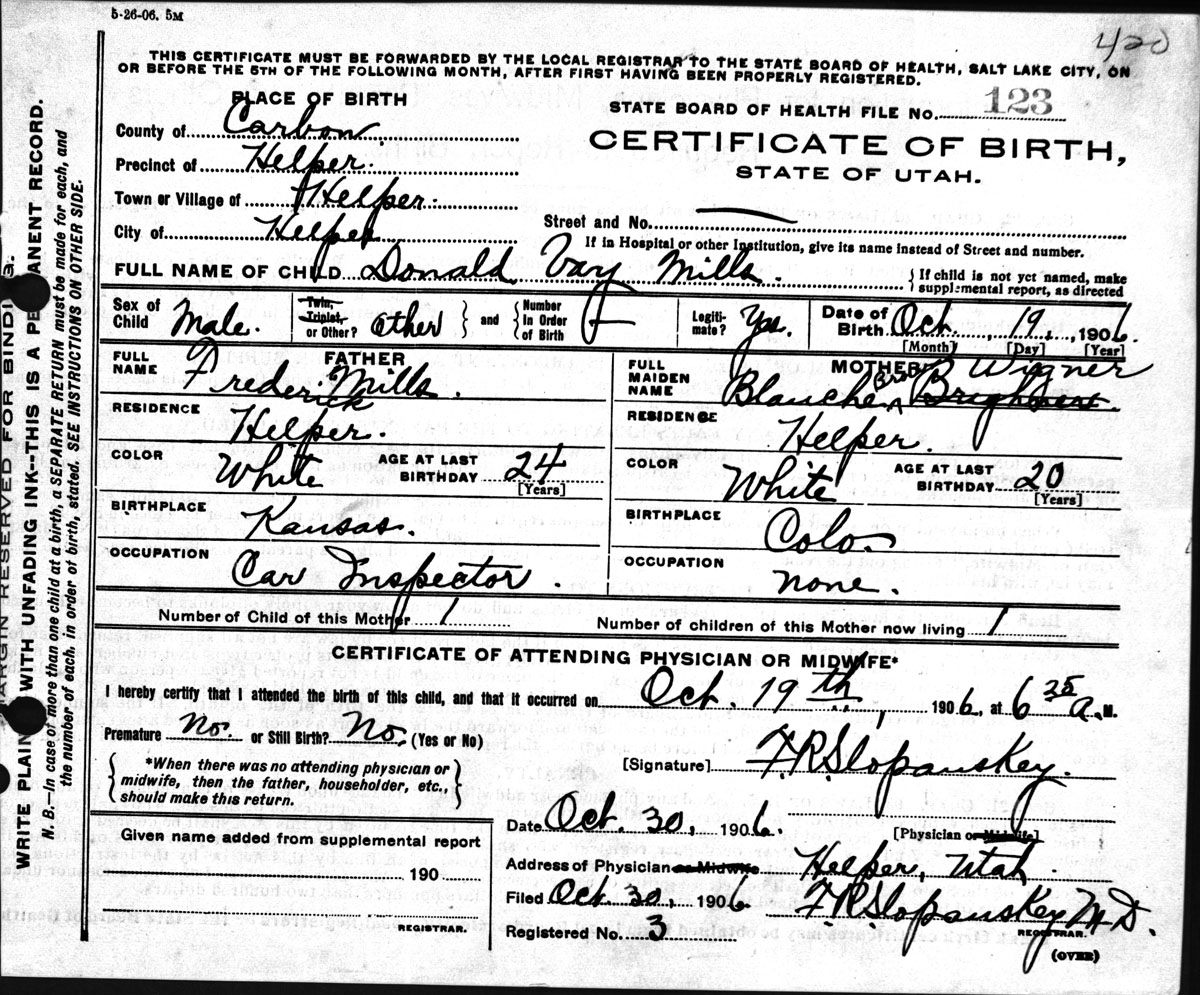 5-26-06. 5M
420
THIS CERTIFICATE MUST BE FORWARDED BY THE LOCAL REGISTRAR TO THE STATE BOARD OF HEALTH, SALT LAKE CITY, ON
OR BEFORE THE 5TH OF THE FOLLOWING MONTH, AFTER FIRST HAVING BEEN PROPERLY REGISTERED.
PLACE OF BIRTH
STATE BOARD OF HEALTH FILE No. 123
County of Carbon
CERTIFICATE OF BIRTH,
Precinct of Helper.
STATE OF UTAH.
Town or Village of Helper.
City of Helper
Street and No. —
If in Hospital or other Institution, give its name instead of Street and number.
FULL NAME OF CHILD Donald Vay Mills.
{ If child is not yet named, make
supplemental report, as directed
Sex of Child Male.
Twin, Triplet, or Other? Other } and { Number in Order of Birth
Legitimate? Yes.
Date of Birth Oct. 19, 1906.
[Month] [Day] [Year]
FATHER
FULL NAME Frederick Mills.
RESIDENCE Helper.
COLOR White AGE AT LAST BIRTHDAY 24
[Years]
BIRTHPLACE Kansas.
OCCUPATION Car Inspector.
MOTHER
FULL MAIDEN NAME Blanche Wigner
RESIDENCE Helper.
COLOR White AGE AT LAST BIRTHDAY 20
[Years]
BIRTHPLACE Colo.
OCCUPATION none.
Number of Child of this Mother 1
Number of children of this Mother now living 1
CERTIFICATE OF ATTENDING PHYSICIAN OR MIDWIFE*
I hereby certify that I attended the birth of this child, and that it occurred on Oct. 19th, 1906, at 6 35 a.M.
Premature No. or Still Birth? No. (Yes or No)
[Signature] F.R. Slopanskey.
{ *When there was no attending physician or
midwife, then the father, householder, etc.,
should make this return. }
[Physician or Midwife]
Date Oct. 30, 1906.
Address of Physician or Midwife Helper, Utah.
Filed Oct. 30, 1906 F.R. Slopanskey M.D.
REGISTRAR.
Registered No. 3
(OVER)
Given name added from supplemental report
190
REGISTRAR.
MARGIN RESERVED FOR BINDI
WRITE PLAIN WITH UNFADING INK--THIS IS A PERMANENT RECORD.
N. B.—In case of more than one child at a birth, a SEPARATE RETURN must be made for each, and
the number of each, in order of birth, stated. SEE INSTRUCTIONS ON OTHER SIDE.